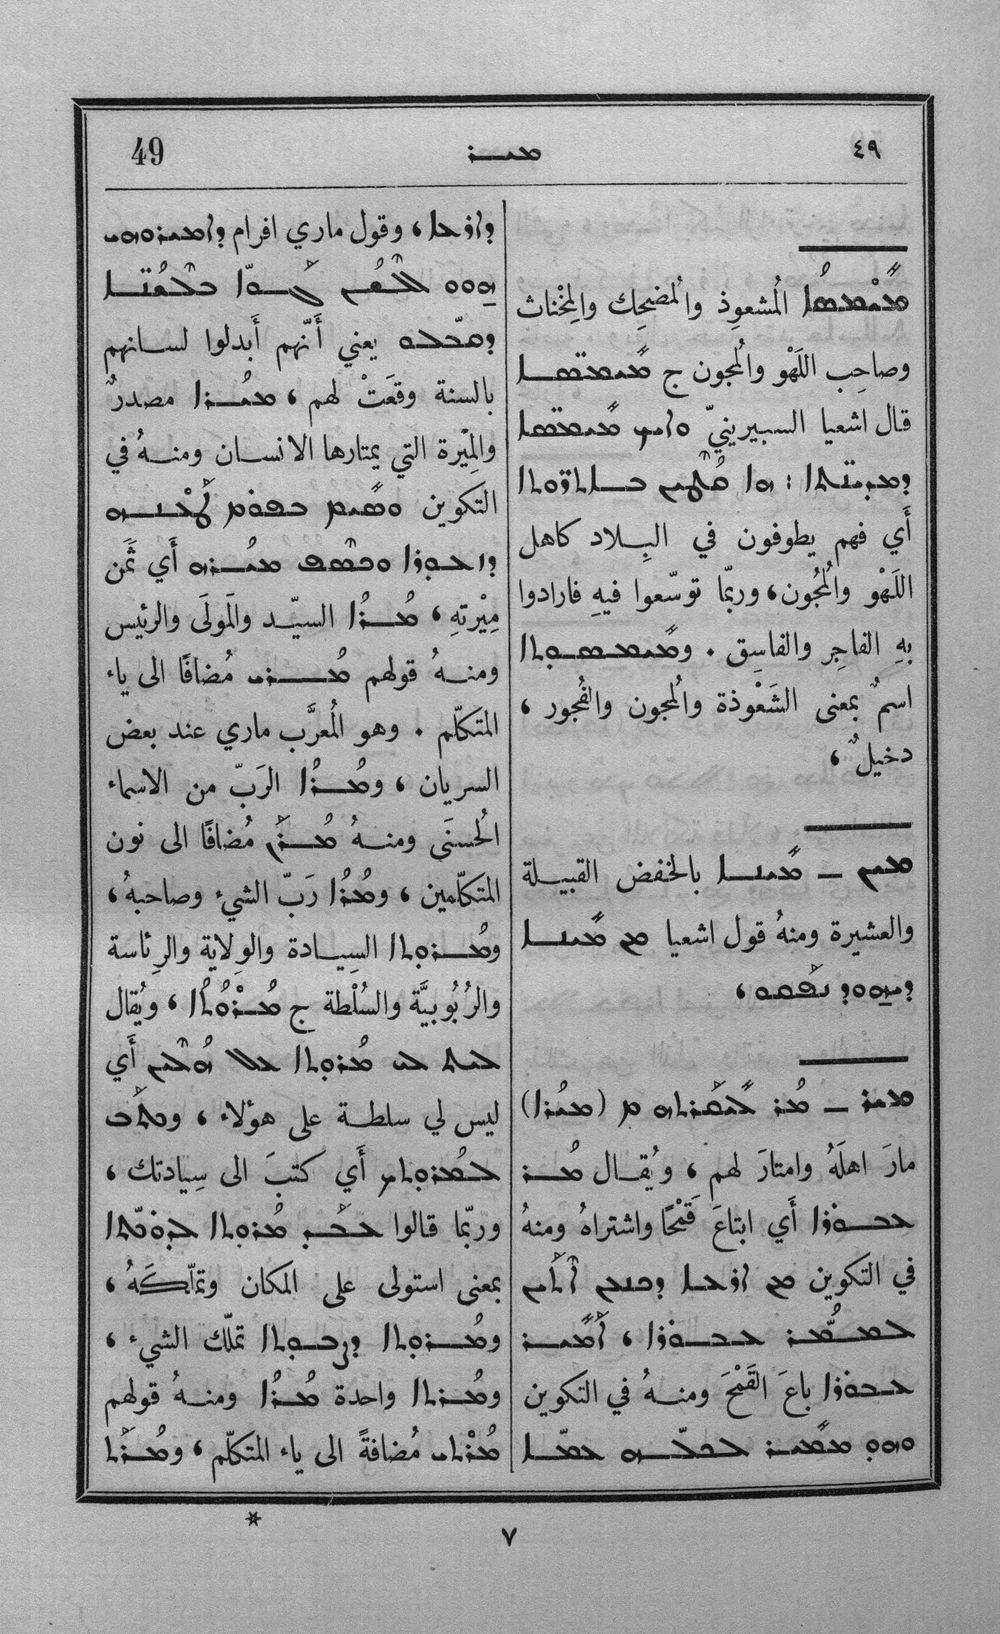 ٤٩
ܡܝܪ
49
ܡܝܡܣܐ المُشعوِذ والمُضحِك والمِخْناث
وصاحِب اللَهْو والمُجون ج ܡܝܡ̈ܣܐ
قال اشعيا السبيرينيّ ܘܐܝܟ ܡܝܡ̈ܣܐ
ܕܡܕܝܢ̈ܬܐ : ܗܐ ܒܐܬܪ̈ܘܬܐ
أَي فهم يطوفون في البِلاد كاهل
اللَهْو والمُجُون، وربمّا توسّعوا فيهِ فارادوا
بهِ الفاجِر والفاسِق . وܡܝܡܣܘܬܐ
اسمٌ بمعنى الشَعْوذة والمُجون والفُجور ،
دخيلٌ ،
ܡܝܢ ـ ܡܝܢܐ بالخفض القبيلة
والعشيرة ومنهُ قول اشعيا ܡܢ ܡܝܢܐ
ܕܝܗܘܕ ܢܦܩܘ ،
ܡܝܪ ـ ܡܪ (ܡܝܪܐ)
مارَ اهلَهُ وامتارَ لهم ، ويُقال ܡܪ
ܥܒܘܪܐ أَي ابتاعَ قَمْحًا واشتراهُ ومنهُ
في التكوين ܡܢ ܐܪܥܐ ܕܟܢܥܢ ܐܬܝܢ
ܠܡܡܪ ܥܒܘܪܐ ، ܐܡܝܪ
ܥܒܘܪܐ باعَ القَمْحَ ومنهُ في التكوين
ܘܗܘ ܡܡܝܪ ܠܟܠܗ ܥܡܐ
ܕܐܪܥܐ ، وقول ماري افرام ܕܐܡܝܪܘܗܝ
ܗܘܘ ܒܠܫ̈ܢܐ
يعني أَنّهم أَبدلوا لسانهم
بالسنة وقعَتْ لهم ، ܡܝܪܐ مصدرٌ
والمِيْرة التي يمتارها الانسان ومنهُ في
التكوين ܘܣܝܡ ܒܦܘܡ ܛܥܢܗ
ܕܙܥܘܪܐ ܘܟܣܦ ܡܝܪܗ أَي ثَمَن
مِيْرتِهِ ، ܡܪܐ السيّد والمَولَى والرئيس
ومنهُ قولهم ܡܪܝ مُضافًا الى ياء
المتكلّم . وهو المُعرَّب ماري عند بعض
السريان ، وܡܪܐ الرَبّ من الاسماء
الحُسنَى ومنهُ ܡܪܢ مُضافًا الى نون
المتكلّمين ، وܡܪܐ رَبّ الشيء وصاحبهُ ،
وܡܪܘܬܐ السِيادة والوِلاية والرِئاسة
والرُبُوبيَّة والسُلْطة ج ܡܪ̈ܘܬܐ ، ويُقال
ܠܝܬ ܠܝ ܡܪܘܬܐ ܥܠ ܗܠܝܢ أَي
ليس لي سلطة على هؤلاء ، ܘܟܬܒ
ܠܡܪܘܬܟ أَي كتبَ الى سِيادتك ،
وربمّا قالوا ܥܒܕ ܡܪܘܬܐ ܥܠ ܕܘܟܬܐ
بمعنى استولى على المكان وتملّكَهُ ،
وܡܪܘܬܐ ܕܨܒܘܬܐ تملّك الشيء ،
وܡܪܬܐ واحدة ܡܪܐ ومنهُ قولهم
ܡܪܬܝ مُضافةً الى ياء المتكلّم ، وܡܪܬܐ
٧
*